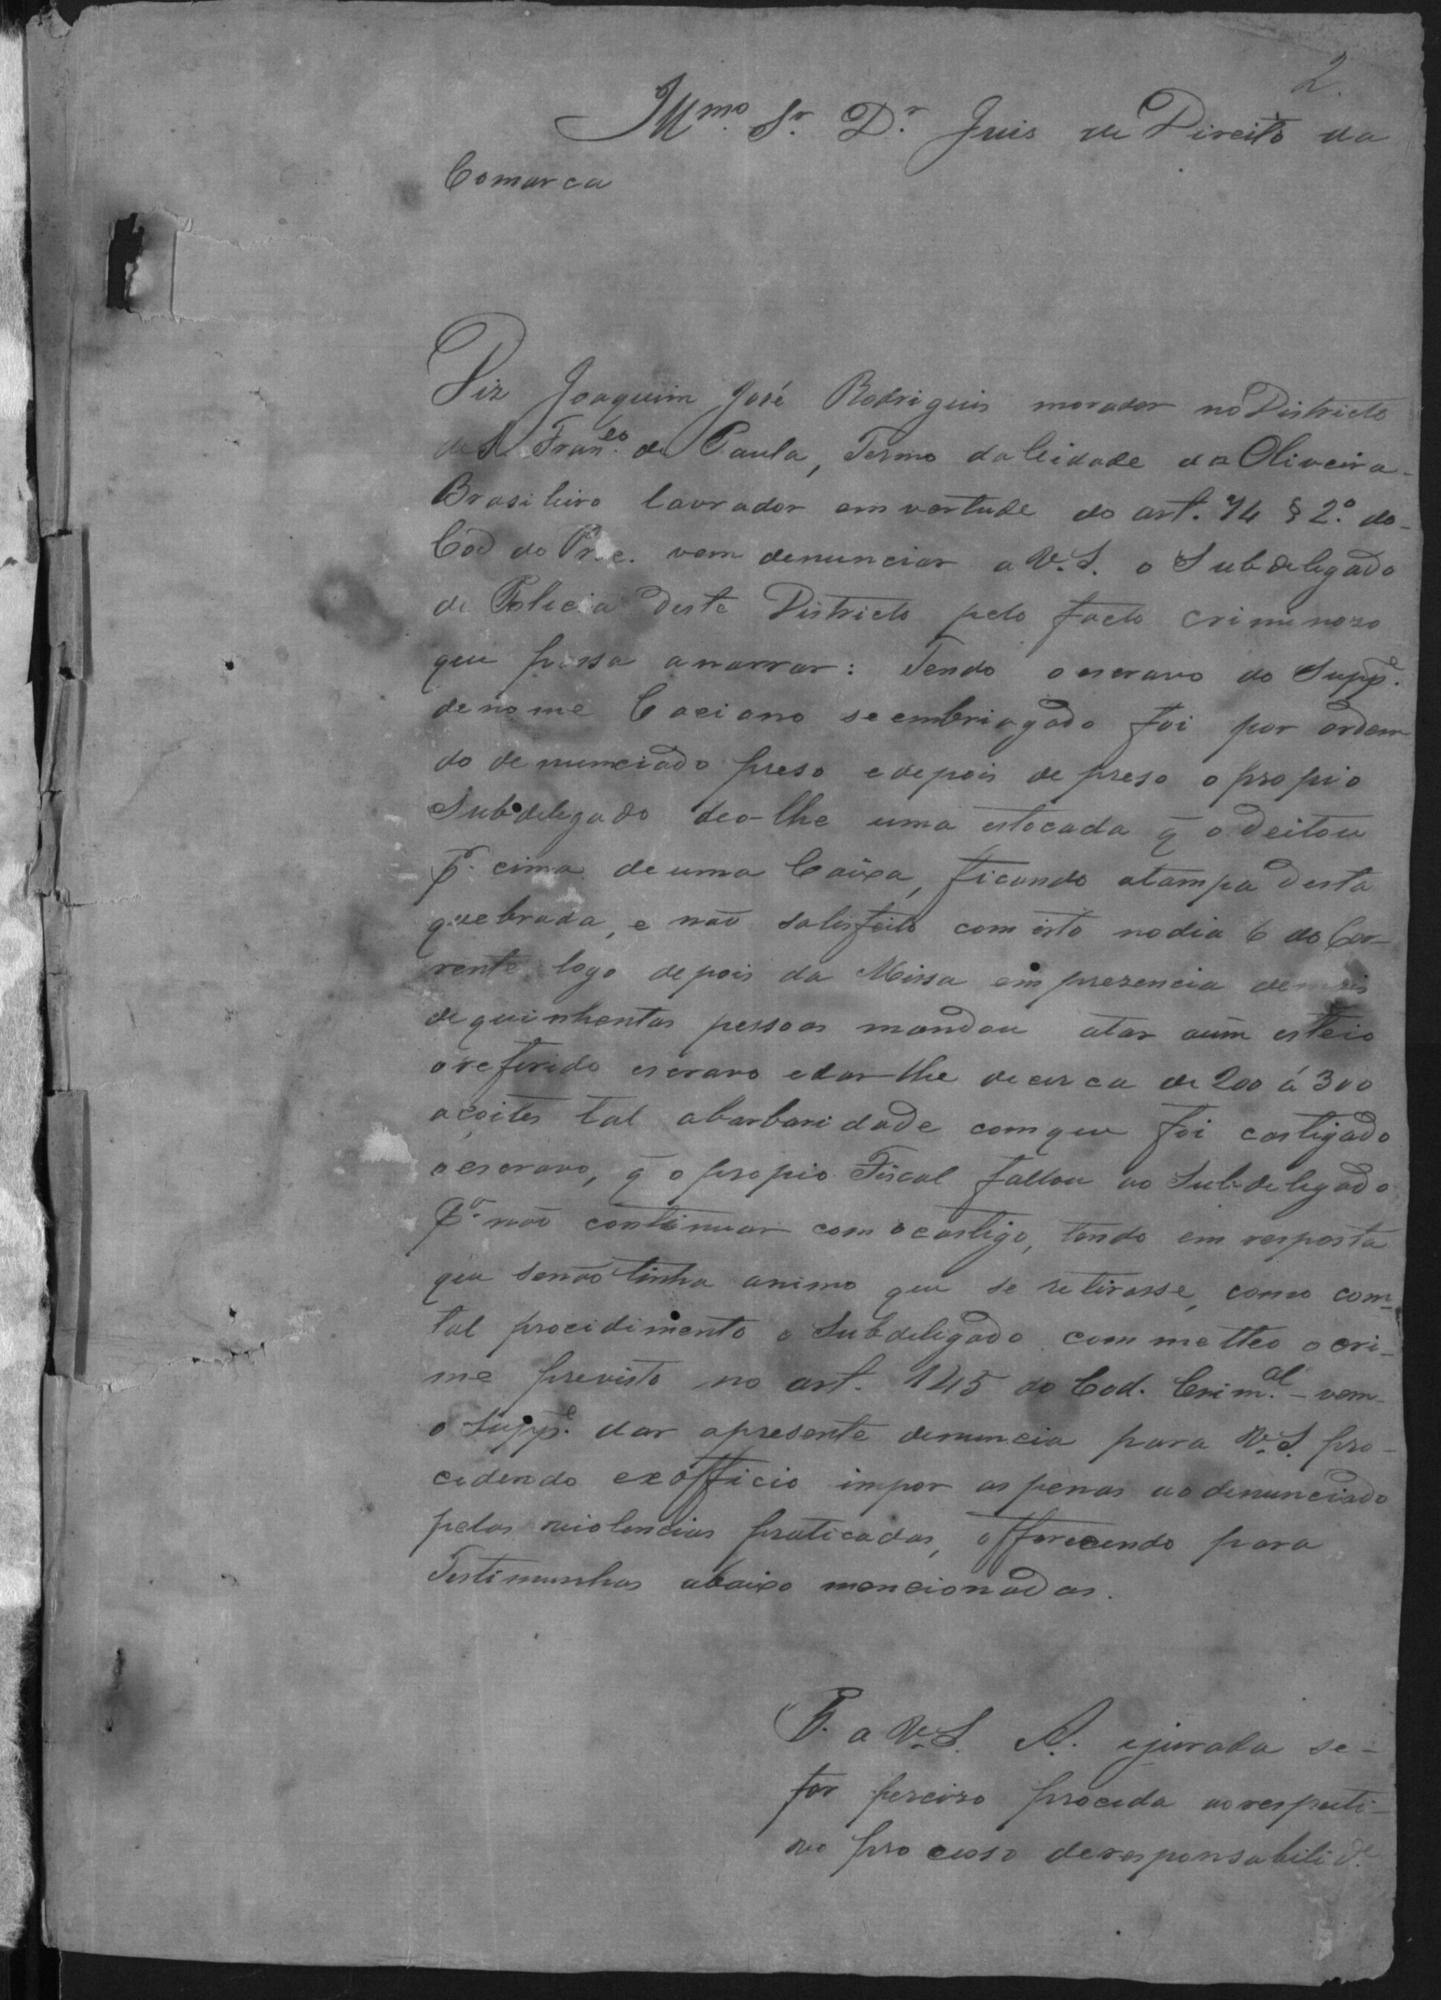 2.
Illmo. Sr. Dr. Juis de Direito da
Comarca
Diz Joaquim José Rodrigues morador no Districto
de S. Franco. de Paula, Termo da Cidade da Oliveira
Brasileiro lavrador em vertude do art. 74 § 2.º do
Cod do Proc. vem denunciar a V. S. o Subdelegado
de Policia deste Districto pelo facto criminozo
que passa a narrar: Tendo o escravo do Suppe.
de nome Caciano se embriagado foi por ordem
do denunciado preso e depois de preso o propio
Subdelegado deo-lhe uma estocada q̃ o deitou
pr. cima de uma Caixa, ficando a tampa desta
quebrada, e não satisfeito com isto no dia 6 do Cor-
rente logo depois da Missa em prezencia de mais
de quinhentas pessoas mandou atar a um esteio
o referido escravo e dar-lhe de cerca de 200 á 300
açoites tal a barbaridade com que foi castigado
o escravo, q̃ o propio Fiscal fallou ao Subdelegado
pa. não continuar com o castigo, tendo em resposta
que se não tinha animo que se retirasse, como com
tal procidimento o Subdelegado commetteo o cri-
me previsto no art. 145 do Cod. Crimal. - vem
o Suppe. dar a presente denuncia para V. S. pro-
cedendo ex officio impor as penas ao denunciado
pelas violencias praticadas, offerecendo para
Testimunhas abaixo mencionadas.
P. a V. S. A. e jurada se-
for perciso proceda ao respecti-
vo processo de responsabilide.